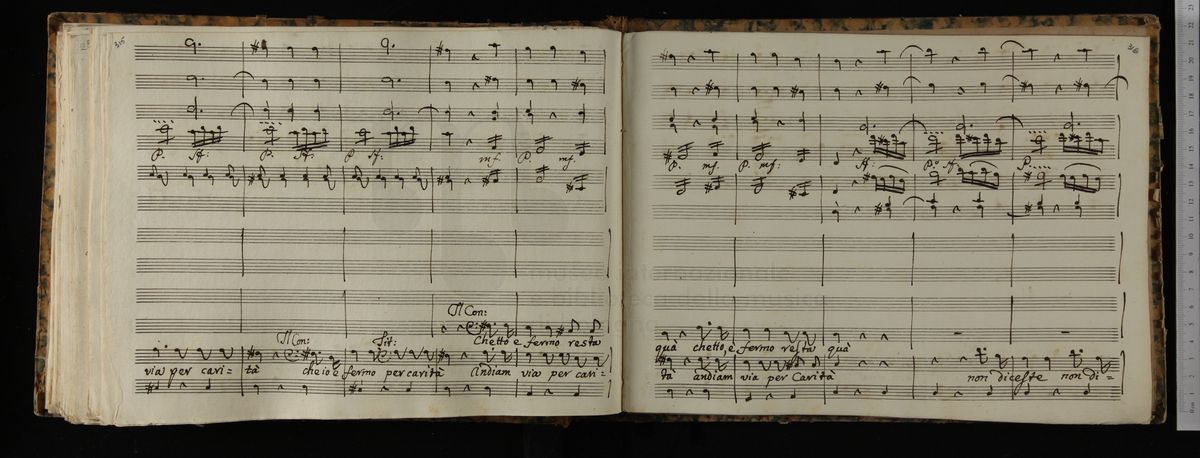 35
P. sf: P. sf: P sf: mf P. mf.
Il Con:
Chetto e fermo resta
Il Con: Tit:
via per cari = tà che io e fermo per carità Andiam via per cari =
36
P. mf P. mf: sf: P.o sf P.
quà chetto, e fermo resta quà
tà andiam via per Carità non diceste non di =